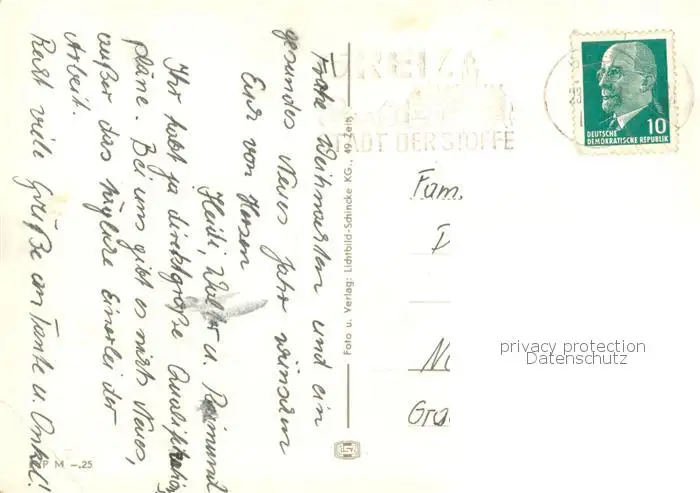 Frohe Weihnachten und ein
gesundes Neues Jahr wünschen
Euch von Herzen
Heidi, Walter u. Raimund
Ihr habt ja direkt große Qualifikations
pläne. Bei uns gibt es nichts Neues,
außer das tägliche Einerlei der
Arbeit.
Recht viele Grüße an Tante u. Onkel!
Foto u. Verlag: Lichtbild-Schincke KG., 49 Zeitz
P M -.25
GREIZ
STADT DER STOFFE
DEUTSCHE
DEMOKRATISCHE REPUBLIK
10
Fam.
privacy protection
Datenschutz